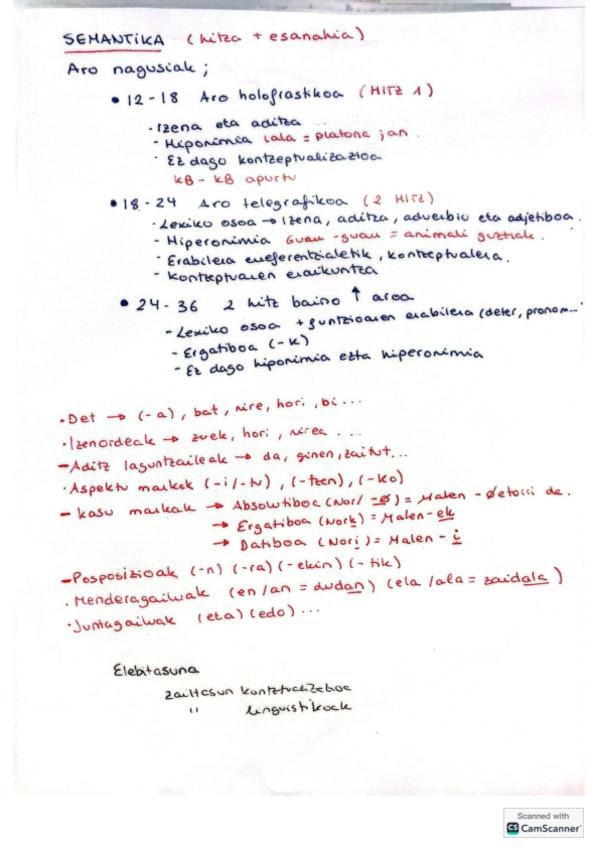 SEMANTIKA (hitza + esanahia)
Aro nagusiak ;
• 12-18 Aro holofrastikoa (HITZ 1)
· Izena eta aditza
- Hiponimia lala = platano jan.
· Ez dago kontzeptualizazioa
kB - kB apurtu
• 18-24 Aro telegrafikoa (2 HITZ)
- Lexiko osoa → Izena, aditza, adverbio eta adjetiboa.
- Hiperonimia Guau-guau = animali guztiak.
- Erabilera erreferentzialetik, kontzeptualera.
- Kontzeptuaren eraikuntza
• 24-36 2 hitz baino ↑ aroa
- Lexiko osoa + funtzioaren erabilera (deter, pronom...
- Ergatiboa (-k)
- Ez dago hiponimia ezta hiperonimia
· Det → (-a), bat, nire, hori, bi...
· Izenordeak → zuek, hori, nirea ...
- Aditz laguntzaileak → da, ginen, zaitut...
· Aspektu markak (-i/-tu), (-tzen), (-ko)
- kasu markak → Absolutiboa (Nor/-ø) = Malen-ø etorri da.
→ Ergatiboa (Nork) = Malen-ek
→ Datiboa (Nori) = Malen-i
- Posposizioak (-n) (-ra) (-ekin) (-tik)
· Menderagailuak (en/an = dudan) (ela/ala = zaidala)
· Juntagailuak (eta) (edo) ...
Elebitasuna
zailtasun
" linguistikoak